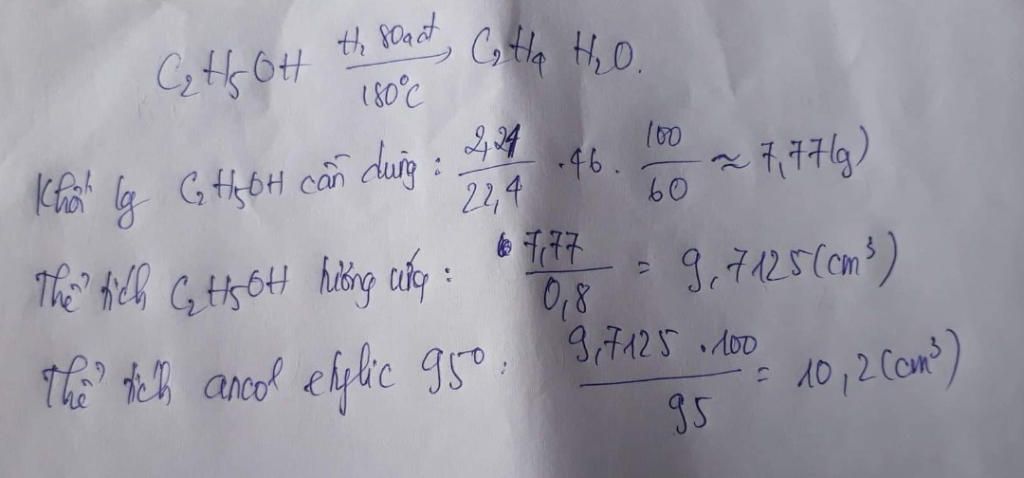 C₂H₅OH \xrightarrow[180°C]{H₂SO₄ đ} C₂H₄ H₂O.
Khối lg C₂H₅OH cần dùng : \frac{2,24}{22,4} . 46 . \frac{100}{60} ≈ 7,77(g)
Thể tích C₂H₅OH tương ứng : \frac{7,77}{0,8} = 9,7125(cm³)
Thể tích ancol etylic 95⁰ : \frac{9,7125 . 100}{95} = 10,2(cm³)